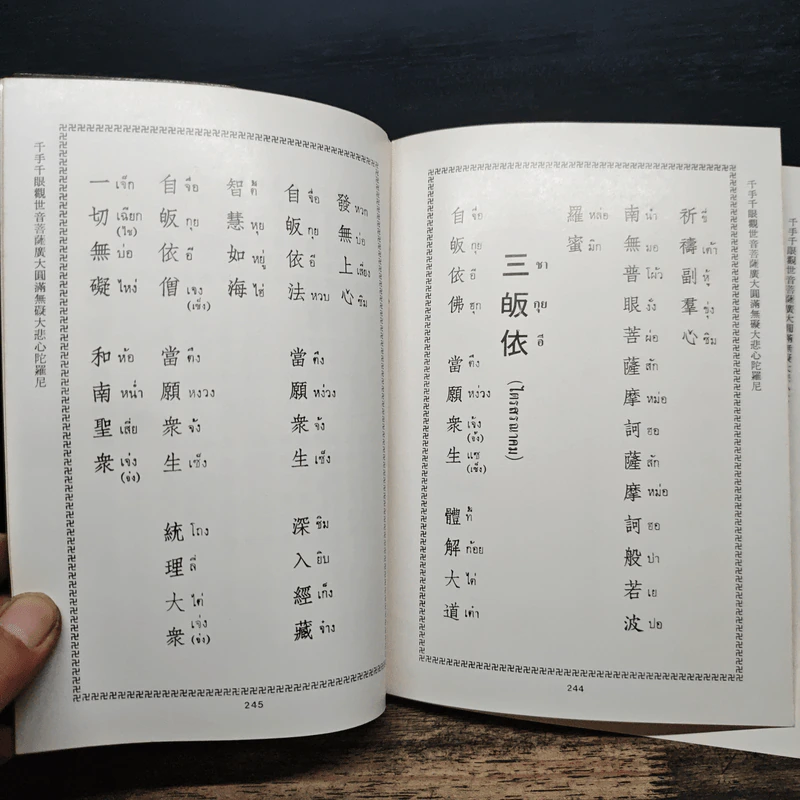 千手千眼觀世音菩薩廣大圓滿無礙大悲心陀羅尼
祈禱副羣心
ขี่ เต้า หู้ ขุ่ง ซิม
南無普眼菩薩摩訶薩摩訶般若波
นำ มอ โผ้ว งั่ง ผ่อ สัก หม่อ ฮอ สัก หม่อ ฮอ ปา เย ปอ
羅蜜
หล่อ มิก
三皈依 (ไตรสรณาคม)
ซา กุย อี
自皈依佛 當願衆生 體解大道
จื่อ กุย อี ฮุก ตึง หง่วง เจ้ง (จั้ง) แซ (เซ็ง) ที้ ก้อย ไต่ เต๋า
244
發無上心
หวก บ่อ เสี่ยง ซิม
自皈依法 當願衆生 深入經藏
จื่อ กุย อี หวบ ตึง หง่วง จั้ง เซ็ง ซิม ยิบ เก็ง จ๋าง
智慧如海
ตี้ หุย หยู่ ไฮ่
自皈依僧 當願衆生 統理大衆
จื่อ กุย อี เจง (เซ็ง) ตึง หงวง จั้ง เซ็ง โถง ลี่ ไต่ เจ่ง (จ่ง)
一切無礙 和南聖衆
เจ็ก เฉียก (ไซ) บ่อ ไหง่ ห้อ หน่ำ เสี่ย เจ่ง (จ่ง)
千手千眼觀世音菩薩廣大圓滿無礙大悲心陀羅尼
245